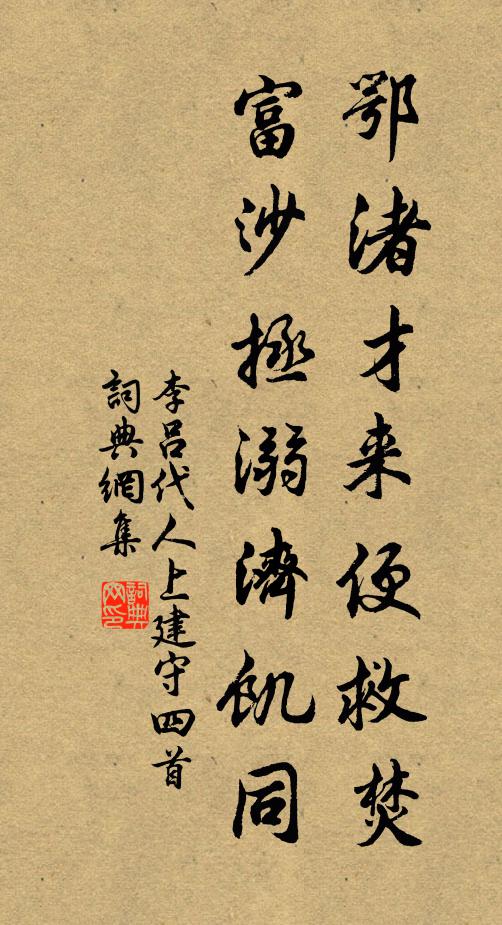 鄂渚才来便救焚
富沙拯溺濟飢同
李呂代人上建守四首
詞典網集
詞典
网印